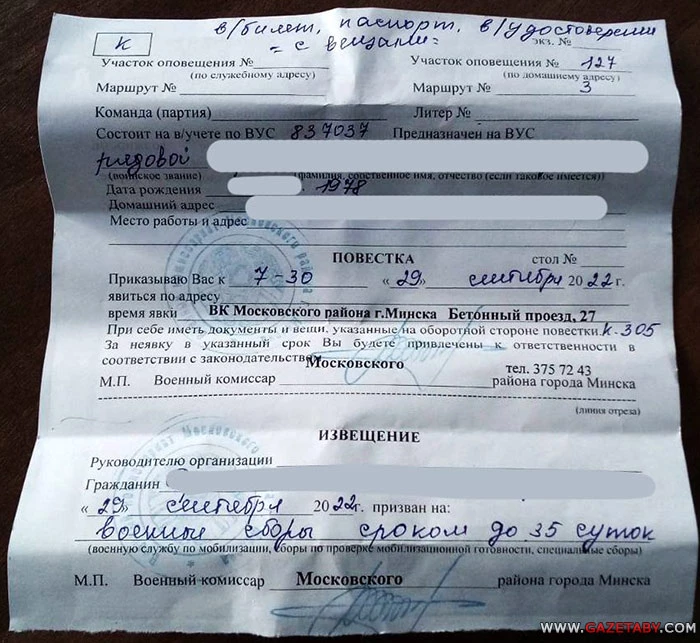 в/билет, паспорт, в/удостоверение
= с вещами =
К
экз. №
Участок оповещения №
Участок оповещения № 127
(по служебному адресу)
(по домашнему адресу)
Маршрут №
Маршрут № 3
Команда (партия)
Литер №
Состоит на в/учете по ВУС 837037 Предназначен на ВУС
рядовой
(воинское звание) фамилия, собственное имя, отчество (если таковое имеется))
Дата рождения 1978
Домашний адрес
Место работы и адрес
ПОВЕСТКА
стол №
Приказываю Вас к 7-30 «29» сентября 2022 г.
явиться по адресу
время явки ВК Московского района г.Минска Бетонный проезд, 27
При себе иметь документы и вещи, указанные на оборотной стороне повестки. к. 305
За неявку в указанный срок Вы будете привлечены к ответственности в
соответствии с законодательством
Московского
тел. 375 72 43
М.П. Военный комиссар района города Минска
(линия отреза)
ИЗВЕЩЕНИЕ
Руководителю организации
Гражданин
«29» сентября 2022г. призван на:
военные сборы сроком до 35 суток
(военную службу по мобилизации, сборы по проверке мобилизационной готовности, специальные сборы)
М.П. Военный комиссар Московского района города Минска
WWW.GAZETABY.COM